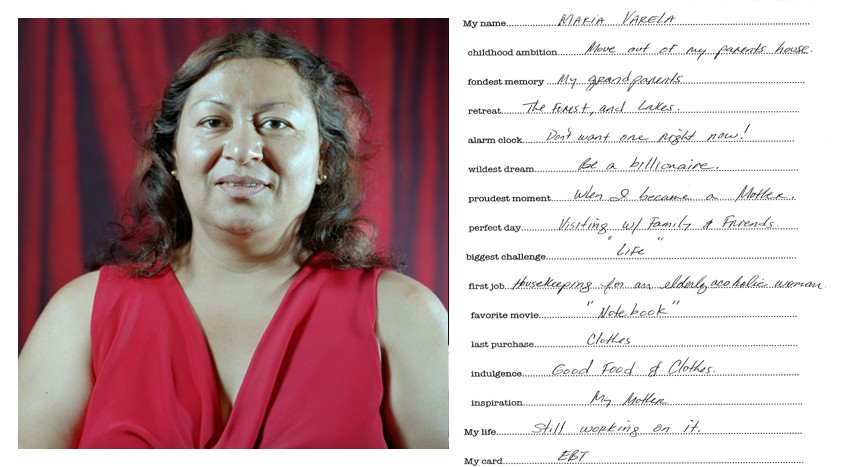 My name MARIA VARELA
childhood ambition Move out of my parents house.
fondest memory My grandparents
retreat The Forest, and Lakes.
alarm clock Don't want one right now!
wildest dream Be a billionaire.
proudest moment When I became a Mother.
perfect day Visiting w/ Family & Friends
biggest challenge "Life"
first job Housekeeping for an elderly acoholic woman
favorite movie "Notebook"
last purchase Clothes
indulgence Good Food & Clothes.
inspiration My Mother
My life Still working on it.
My card EBT